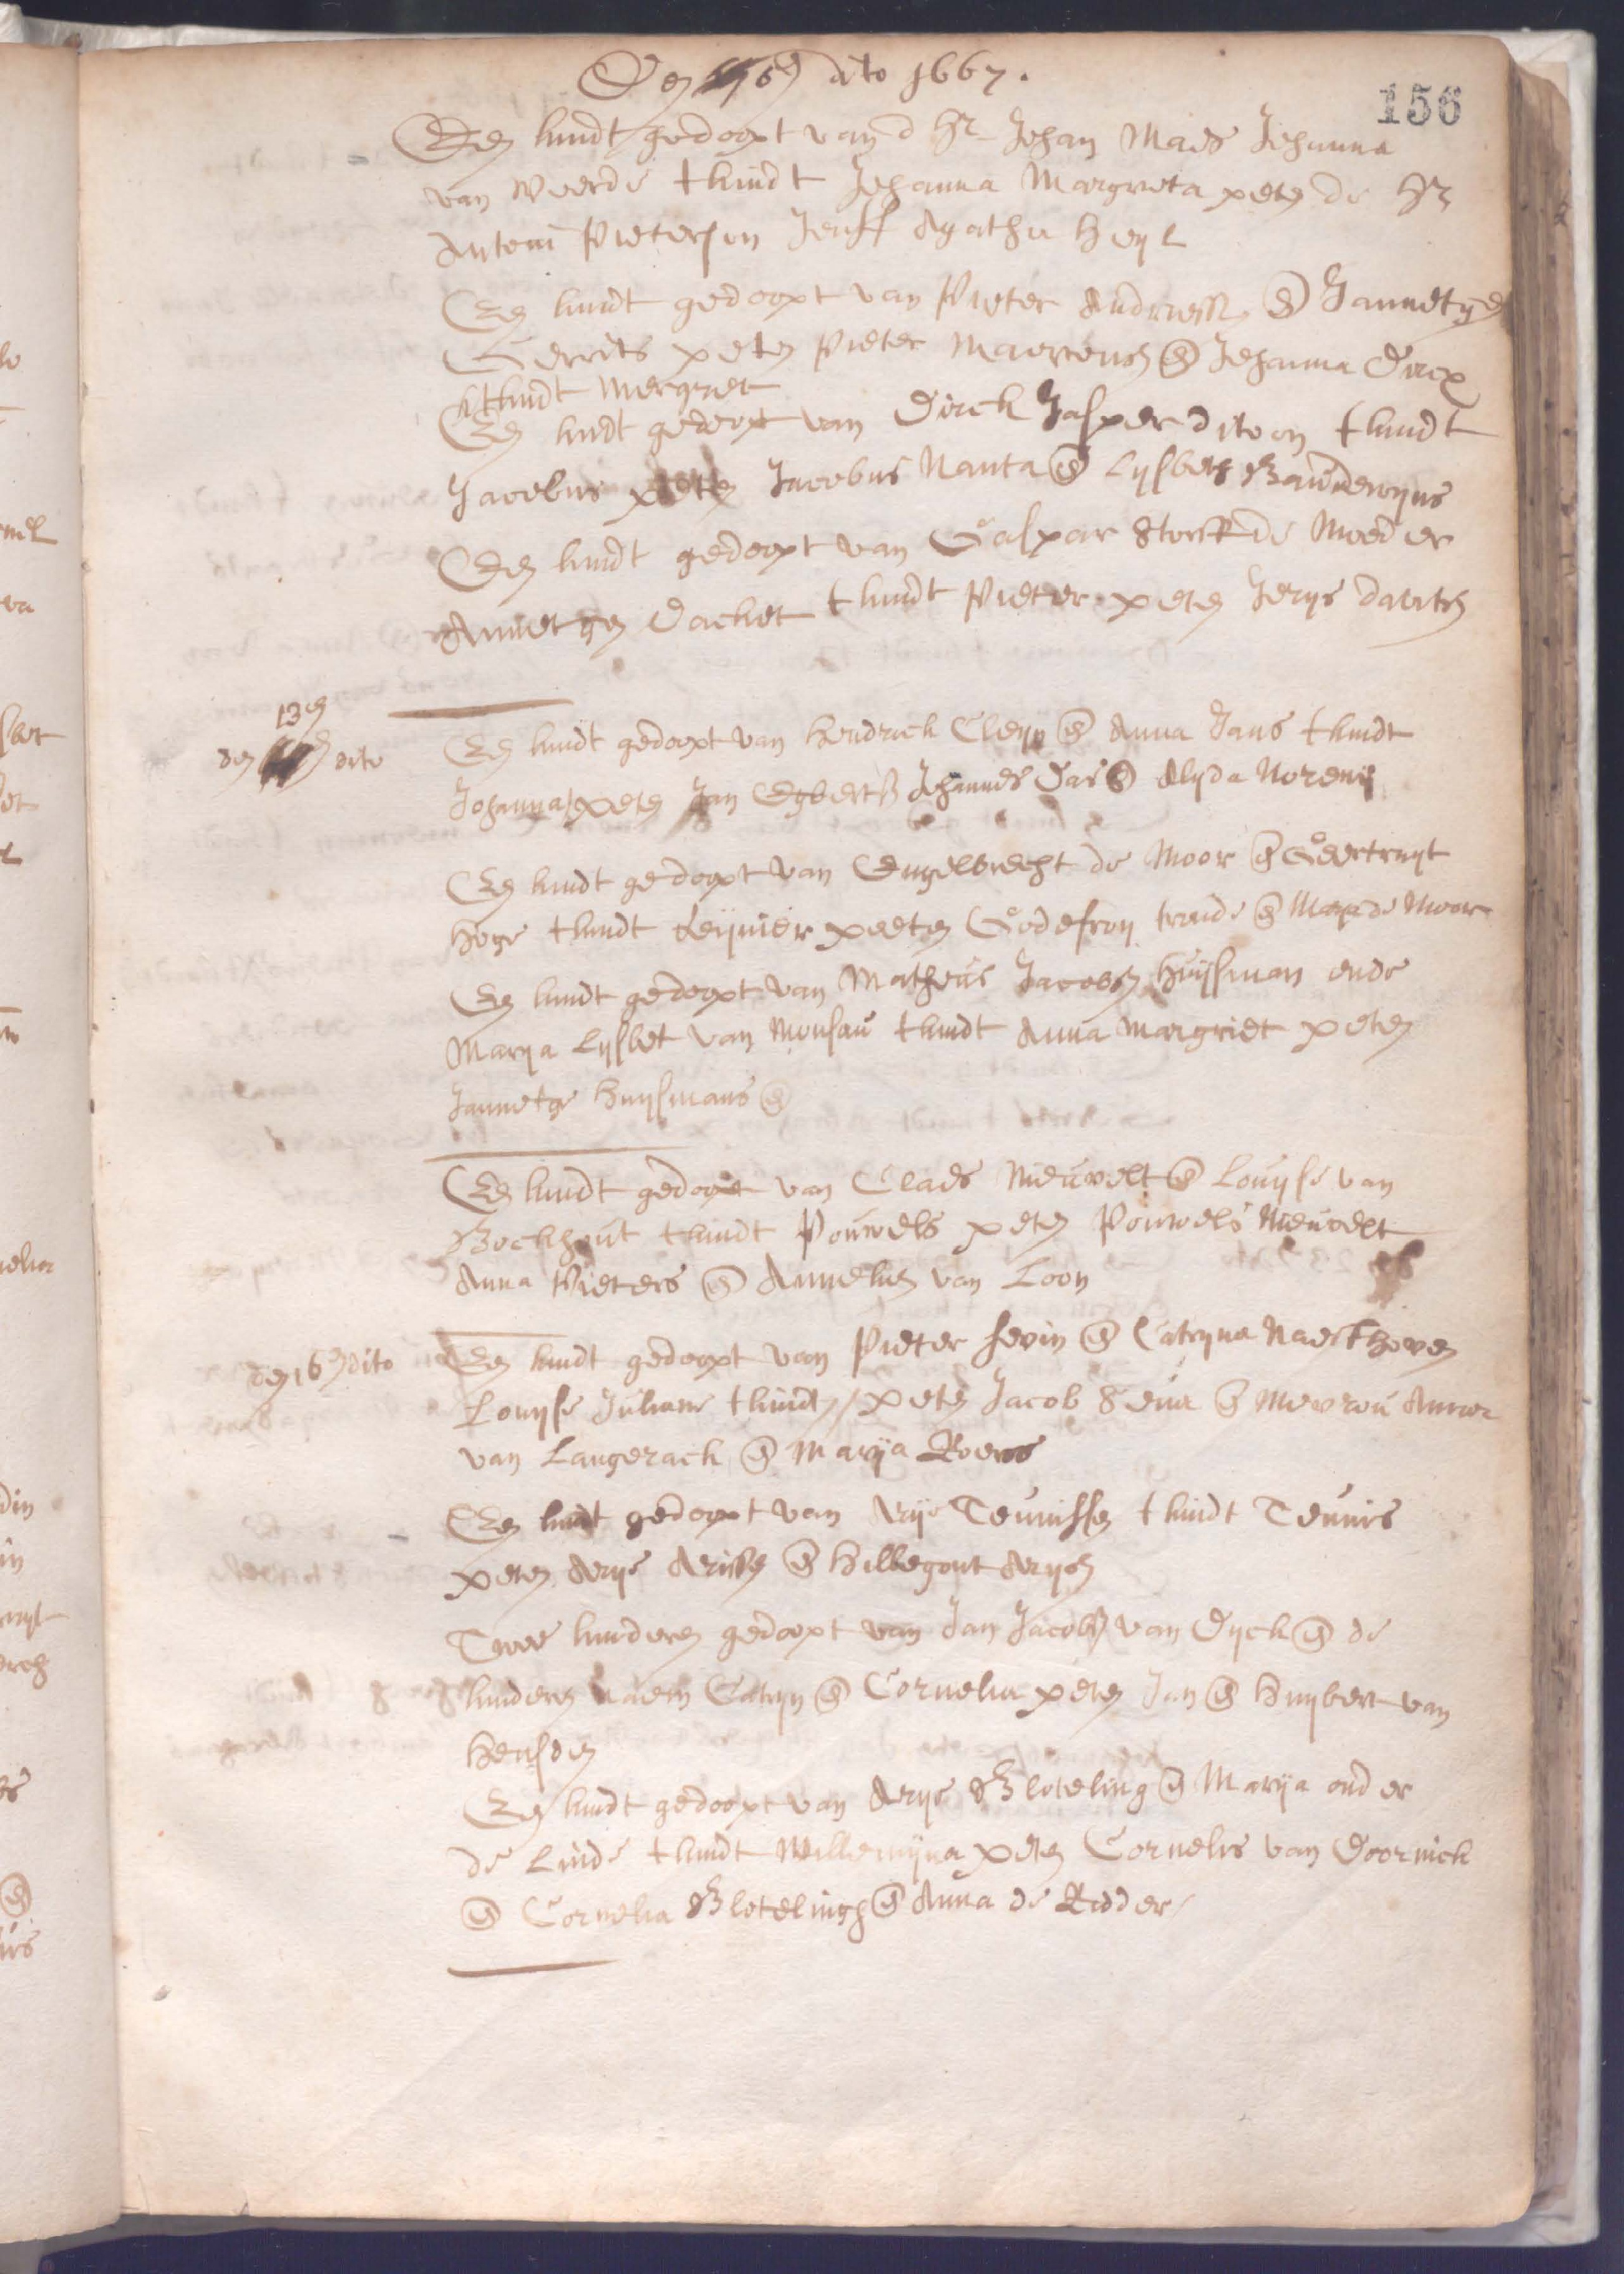 Den 6en dito 1667.
156
Een kindt gedoopt van d hr Johan Maes Jehanna
van Weerde t kindt Jehanna Margreta peten de hr
Antoni Pieterson Jenff Agatha Heyl
Een kindt gedoopt van Pieter Andriessen en Jannetge
Gerrits peten Pieter Maertensen en Jehanna Dircx
t kindt Mergriet
Een kindt gedoopt van Dirck Jasper ditoon t kindt
Jacobus peten Jacobus Nanta en Lysbets Bauderwyns
Een kindt gedoopt van Gaspar Storck de Moeder
Annetgen Dacket t kindt Pieter peten Jerys davitsen
13en
den dito
Een kindt gedoopt van Hendrick Cleyn en Anna Jans t kindt
Johanna peten Jan Egbertsen Jehannes Das en Alyda Norenis
Een kindt gedoopt van Engelbrecht de Moor en Geertruyt
Hoge t kindt Reynier peeten Godefroy trende en Marya de Moor
Een kindt gedoopt van Matheus Jacobsen Huysman ende
Marya Lysbet van Monsau t kindt Anna Margriet peten
Jannetge Huysmans en
Een kindt gedoopt van Claes Nieuvelt en Louyse van
Bockhout t kindt Pouwels peten Pouwels Nieuvelt
Anna Pieters en Annelus van Loon
den 16en dito
Een kindt gedoopt van Pieter Sevin en Catryna Naesthoven
Louyse Juliane t kindt / peten Jacob Seur en Mevrou Anna
van Langerack en Marya Roeros
Een kindt gedoopt van Arye Teunissen t kindt Teunis
peten Arye Arissen en Hillegont Arysen
Twee kinderen gedoopt van Jan Jacobsen van Dyck en de
kinderen naem Catryn en Cornelia peten Jan en Huybert van
Heusden
Een kindt gedoopt van Arye Bloteling en Marya onder
de Linde t kindt Willemyna peten Cornelis van Doornick
en Cornelia Blotelingh en Anna de Ridder